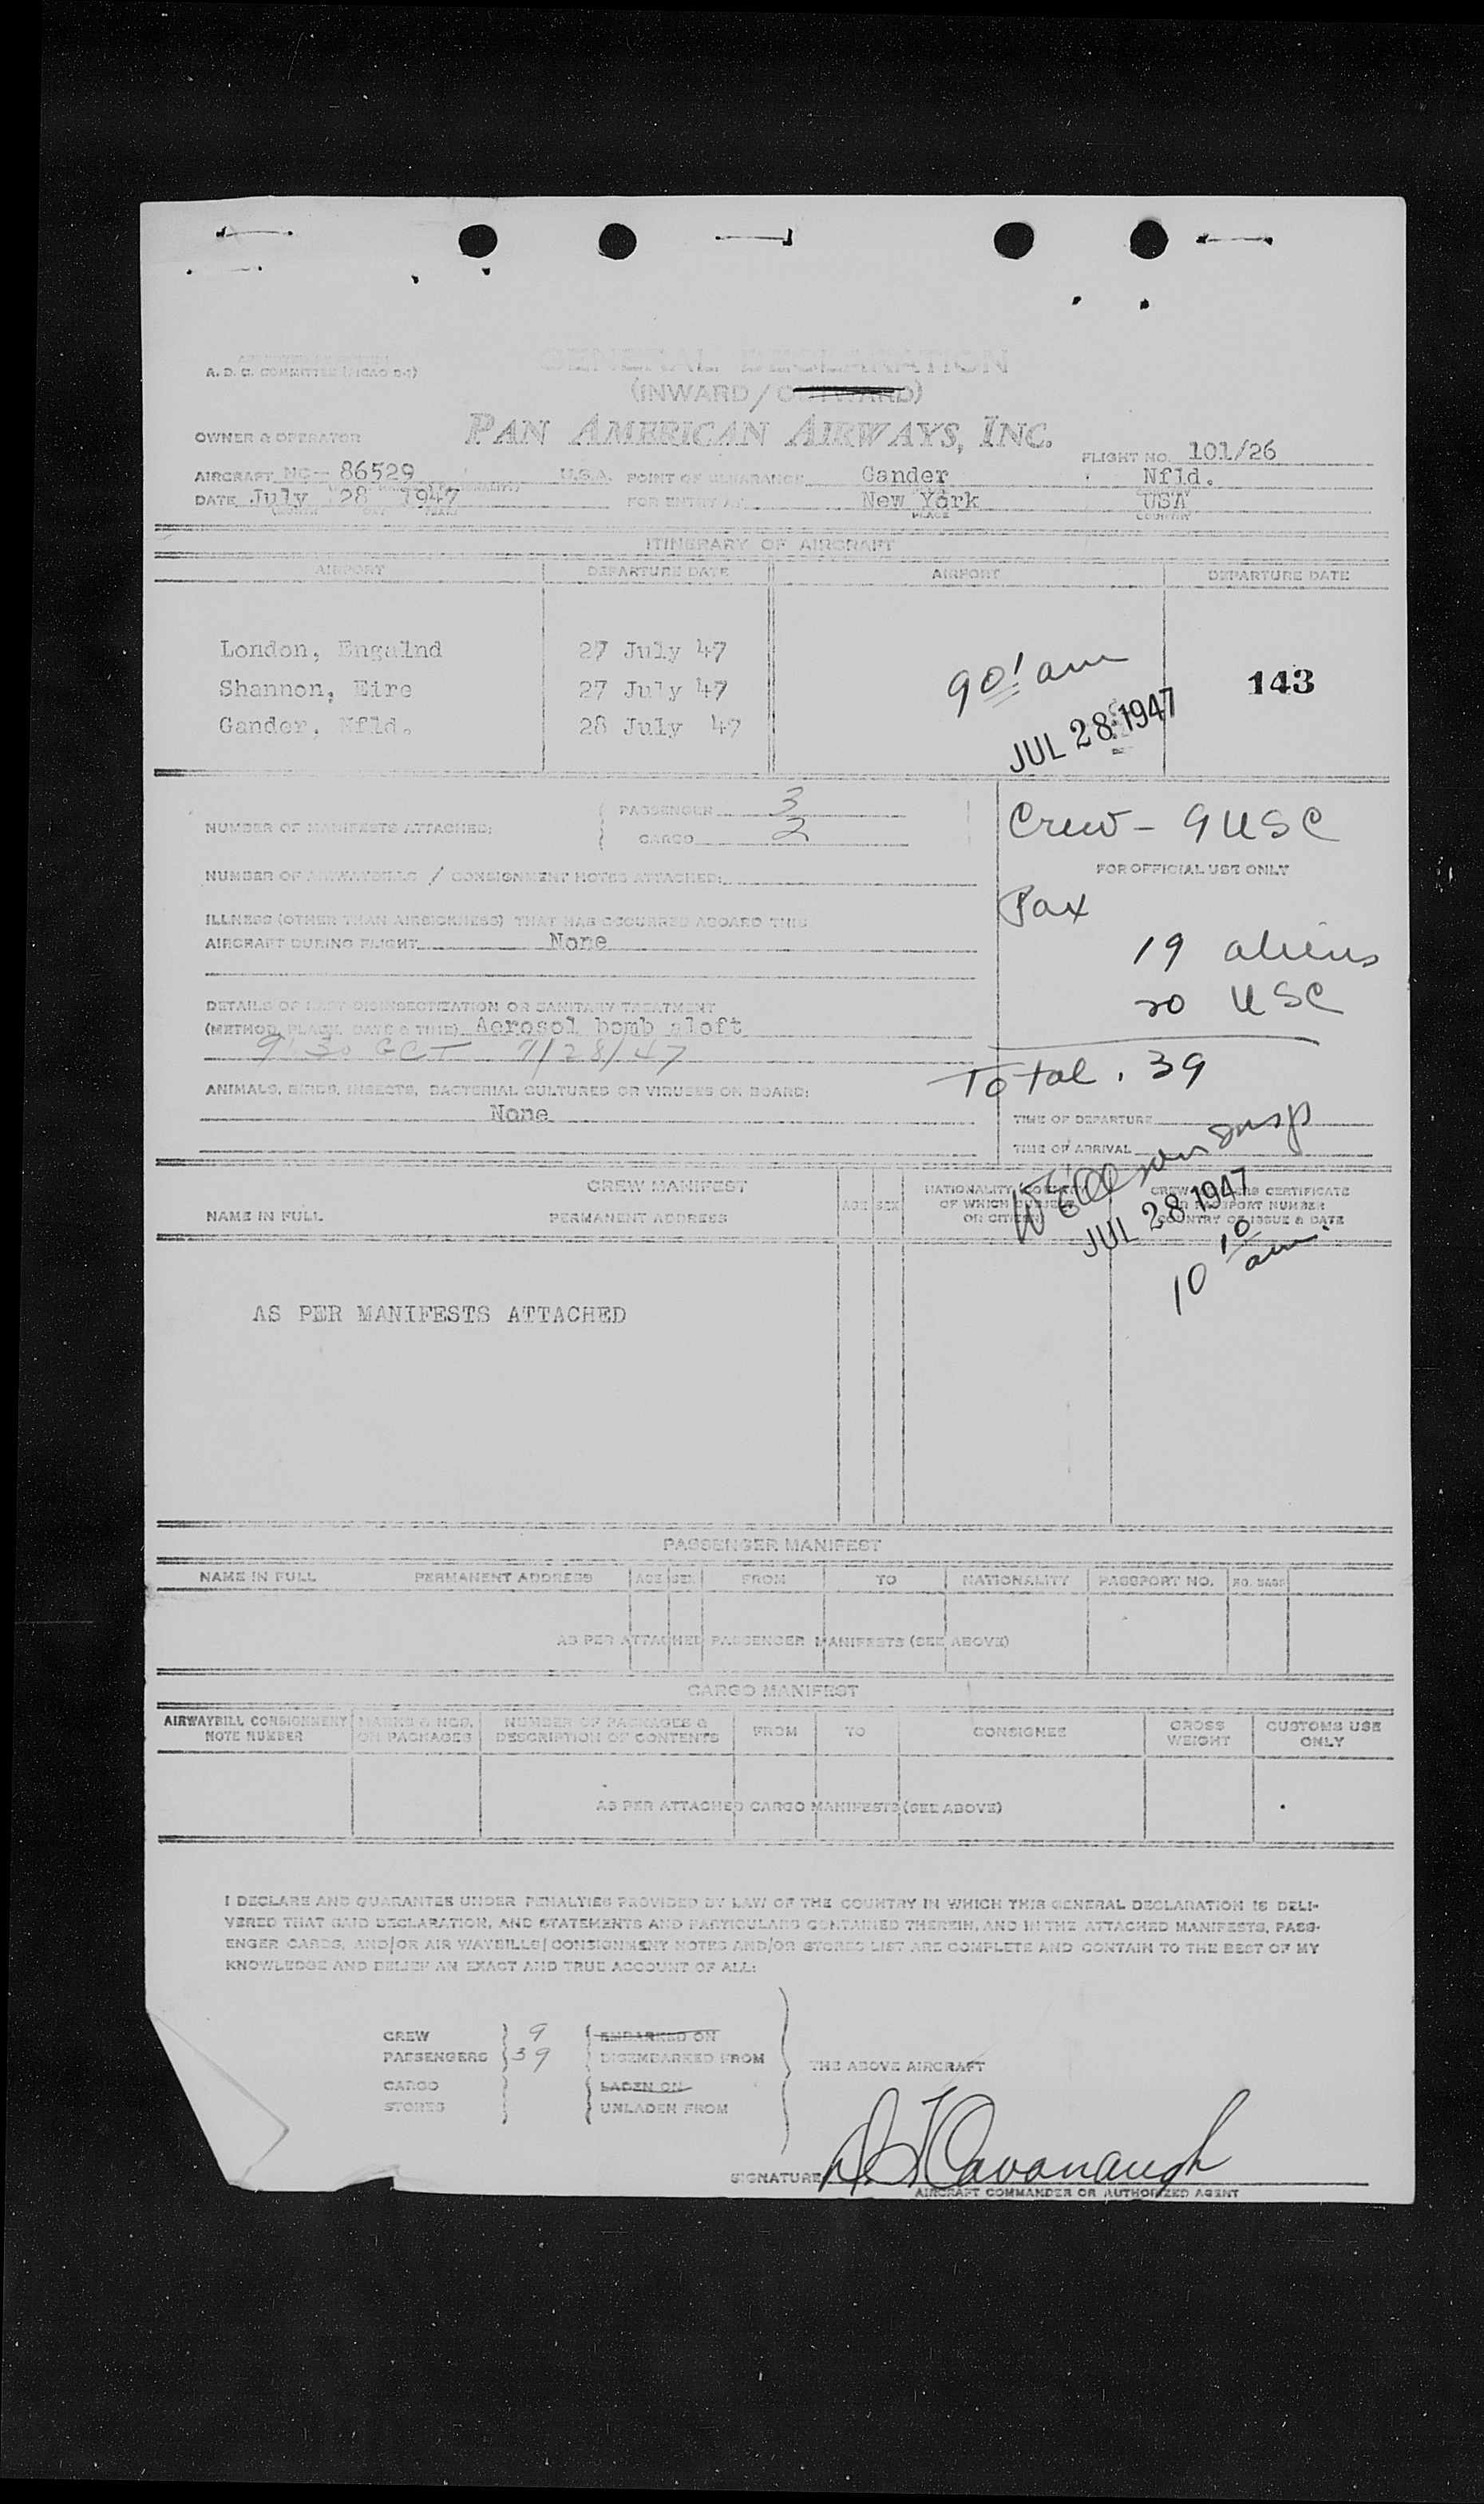 A. D. C. COMMITTEE (PICAO S-1)
GENERAL DECLARATION
(INWARD / OUTWARD)
OWNER & OPERATOR PAN AMERICAN AIRWAYS, INC.
FLIGHT NO. 101/26
AIRCRAFT NC- 86529 U.S.A. POINT OF CLEARANCE Gander Nfld.
DATE July 28 1947 FOR ENTRY AT New York USA
PLACE COUNTRY
ITINERARY OF AIRCRAFT
AIRPORT DEPARTURE DATE AIRPORT DEPARTURE DATE
London, Engalnd 27 July 47
Shannon, Eire 27 July 47
Gander, Nfld. 28 July 47
90! am
143
JUL 28 1947
NUMBER OF MANIFESTS ATTACHED:
PASSENGER 3
CARGO 2
Crew - 9 USC
FOR OFFICIAL USE ONLY
NUMBER OF AIRWAYBILLS / CONSIGNMENT NOTES ATTACHED:
Pax
ILLNESS (OTHER THAN AIRSICKNESS) THAT HAS OCCURRED ABOARD THIS
AIRCRAFT DURING FLIGHT None
19 aliens
20 USC
DETAILS OF LAST DISINSECTIZATION OR SANITARY TREATMENT
(METHOD, PLACE, DATE & TIME) Aerosol bomb aloft
9:30 GCT 7/28/47
Total . 39
ANIMALS, BIRDS, INSECTS, BACTERIAL CULTURES OR VIRUSES ON BOARD:
None
TIME OF DEPARTURE
TIME OF ARRIVAL
Insp
JUL 28 1947
10 10 am.
CREW MANIFEST
NAME IN FULL PERMANENT ADDRESS AGE SEX NATIONALITY (COUNTRY OF WHICH SUBJECT OR CITIZEN) CREW MEMBERS CERTIFICATE OR PASSPORT NUMBER COUNTRY OF ISSUE & DATE
AS PER MANIFESTS ATTACHED
PASSENGER MANIFEST
NAME IN FULL PERMANENT ADDRESS AGE SEX FROM TO NATIONALITY PASSPORT NO. NO. BAGS
AS PER ATTACHED PASSENGER MANIFESTS (SEE ABOVE)
CARGO MANIFEST
AIRWAYBILL CONSIGNMENT NOTE NUMBER MARKS & NOS. ON PACKAGES NUMBER OF PACKAGES & DESCRIPTION OF CONTENTS FROM TO CONSIGNEE GROSS WEIGHT CUSTOMS USE ONLY
AS PER ATTACHED CARGO MANIFESTS (SEE ABOVE)
I DECLARE AND GUARANTEE UNDER PENALTIES PROVIDED BY LAW OF THE COUNTRY IN WHICH THIS GENERAL DECLARATION IS DELI-
VERED THAT SAID DECLARATION, AND STATEMENTS AND PARTICULARS CONTAINED THEREIN, AND IN THE ATTACHED MANIFESTS, PASS-
ENGER CARDS, AND/OR AIR WAYBILLS/CONSIGNMENT NOTES AND/OR STORES LIST ARE COMPLETE AND CONTAIN TO THE BEST OF MY
KNOWLEDGE AND BELIEF AN EXACT AND TRUE ACCOUNT OF ALL:
CREW 9 EMBARKED ON
PASSENGERS 39 DISEMBARKED FROM THE ABOVE AIRCRAFT
CARGO LADEN ON
STORES UNLADEN FROM
SIGNATURE Cavanaugh
AIRCRAFT COMMANDER OR AUTHORIZED AGENT